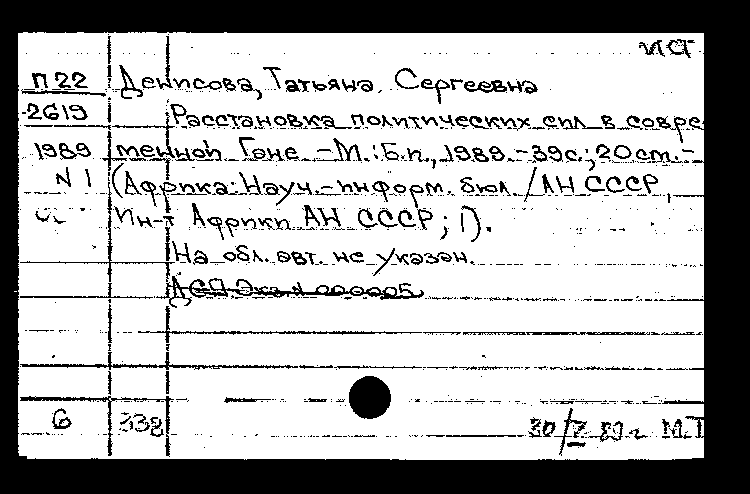 ист
П 22 Денисова, Татьяна Сергеевна
-2619 Расстановка политических сил в совре-
1989 менной Гане. – М.: Б.и., 1989. – 39с.; 20 см. –
N 1 (Африка: Науч. - информ. бюл. / АН СССР,
Ин-т Африки АН СССР; 1).
На обл. авт. не указан.
ДСП Экз.N 000005
6 338 30/V 89 г М.Т